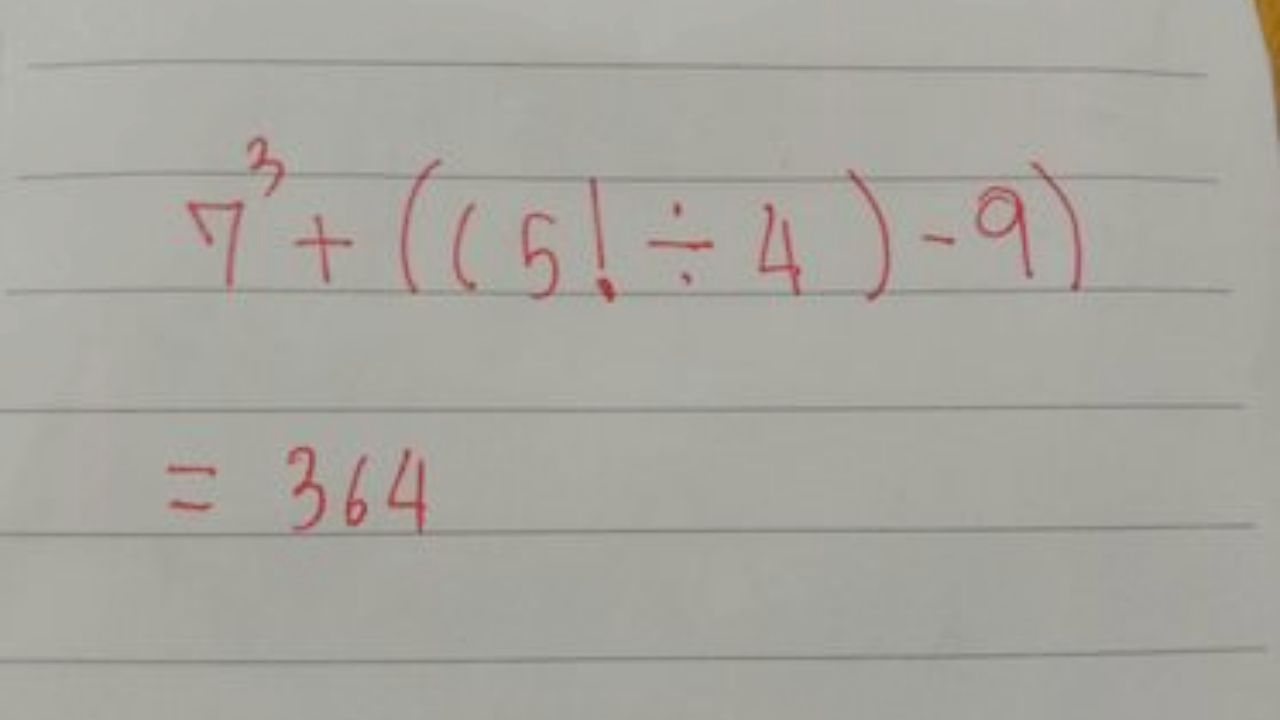 7³ + ((5! ÷ 4) - 9)
= 364